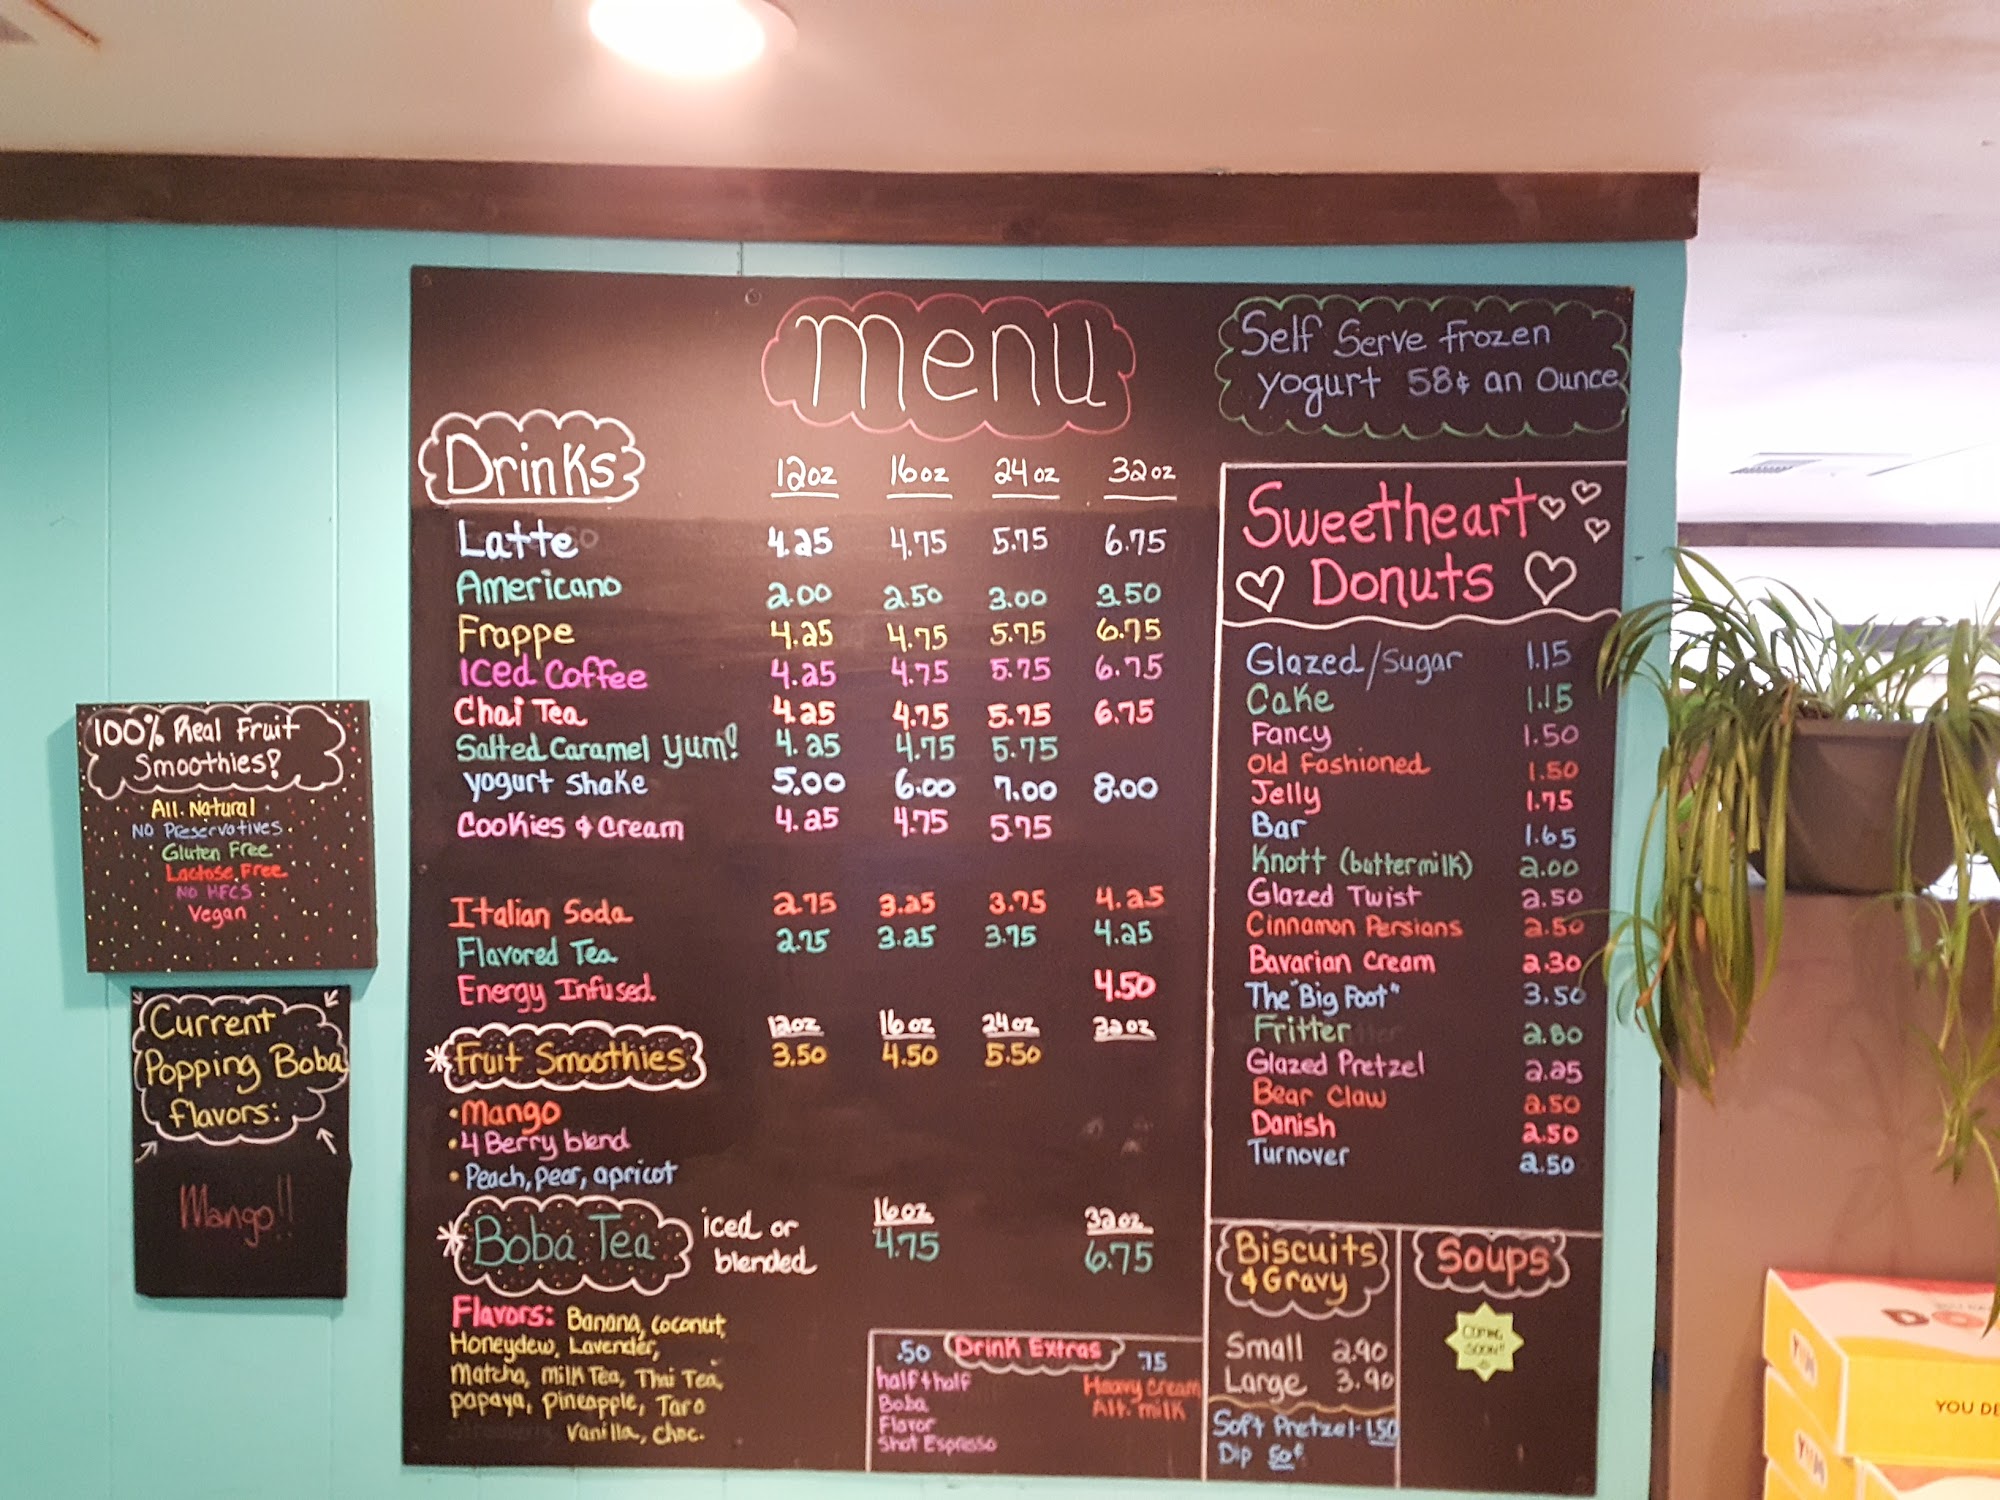 Menu
Self Serve frozen
yogurt 58¢ an Ounce
Drinks 12oz 16oz 24oz 32oz
Latte 4.25 4.75 5.75 6.75
Americano 2.00 2.50 3.00 3.50
Frappe 4.25 4.75 5.75 6.75
Iced Coffee 4.25 4.75 5.75 6.75
Chai Tea 4.25 4.75 5.75 6.75
Salted Caramel Yum! 4.25 4.75 5.75
yogurt Shake 5.00 6.00 7.00 8.00
Cookies & Cream 4.25 4.75 5.75
Italian Soda 2.75 3.25 3.75 4.25
Flavored Tea 2.75 3.25 3.75 4.25
Energy Infused. 4.50
12oz 16oz 24oz 32oz
*Fruit Smoothies 3.50 4.50 5.50
• Mango
• 4 Berry blend
• Peach, pear, apricot
16oz 32oz
*Boba Tea iced or blended 4.75 6.75
Flavors: Banana, coconut,
Honeydew, Lavender,
Matcha, Milk Tea, Thai Tea,
papaya, Pineapple, Taro
Vanilla, choc.
.50 Drink Extras .75
half & half Heavy Cream
Boba Alt. milk
Flavor
Shot Espresso
Sweetheart
Donuts
Glazed/Sugar 1.15
Cake 1.15
Fancy 1.50
Old Fashioned 1.50
Jelly 1.75
Bar 1.65
Knott (buttermilk) 2.00
Glazed Twist 2.50
Cinnamon Persians 2.50
Bavarian Cream 2.30
The "Big Foot" 3.50
Fritter 2.80
Glazed Pretzel 2.25
Bear Claw 2.50
Danish 2.50
Turnover 2.50
Biscuits
& Gravy
Small 2.90
Large 3.90
Soft Pretzel - 1.50
Dip 50¢
Soups
Coming
Soon!!
100% Real Fruit
Smoothies!
All Natural
No Preservatives
Gluten Free
Lactose Free
No HFCS
Vegan
Current
Popping Boba
flavors:
Mango!!
YUM
YOU DE
YUM